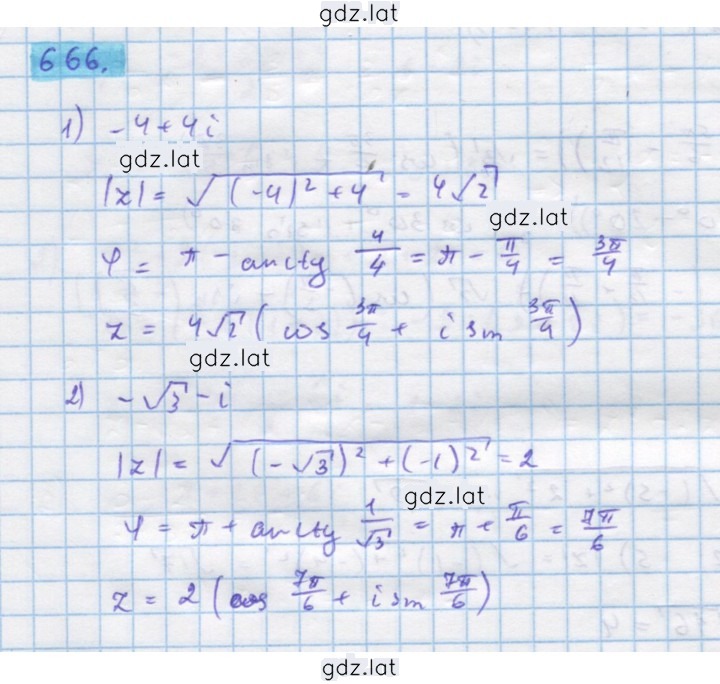 gdz.lat
666.
1) -4+4i
gdz.lat
|z| = √((-4)² + 4²) = 4√2
gdz.lat
φ = π - arctg 4/4 = π - π/4 = 3π/4
z = 4√2 ( cos 3π/4 + i sin 3π/4 )
gdz.lat
2) -√3 - i
|z| = √((-√3)² + (-1)²) = 2
gdz.lat
φ = π + arctg 1/√3 = π + π/6 = 7π/6
z = 2 ( cos 7π/6 + i sin 7π/6 )
gdz.lat